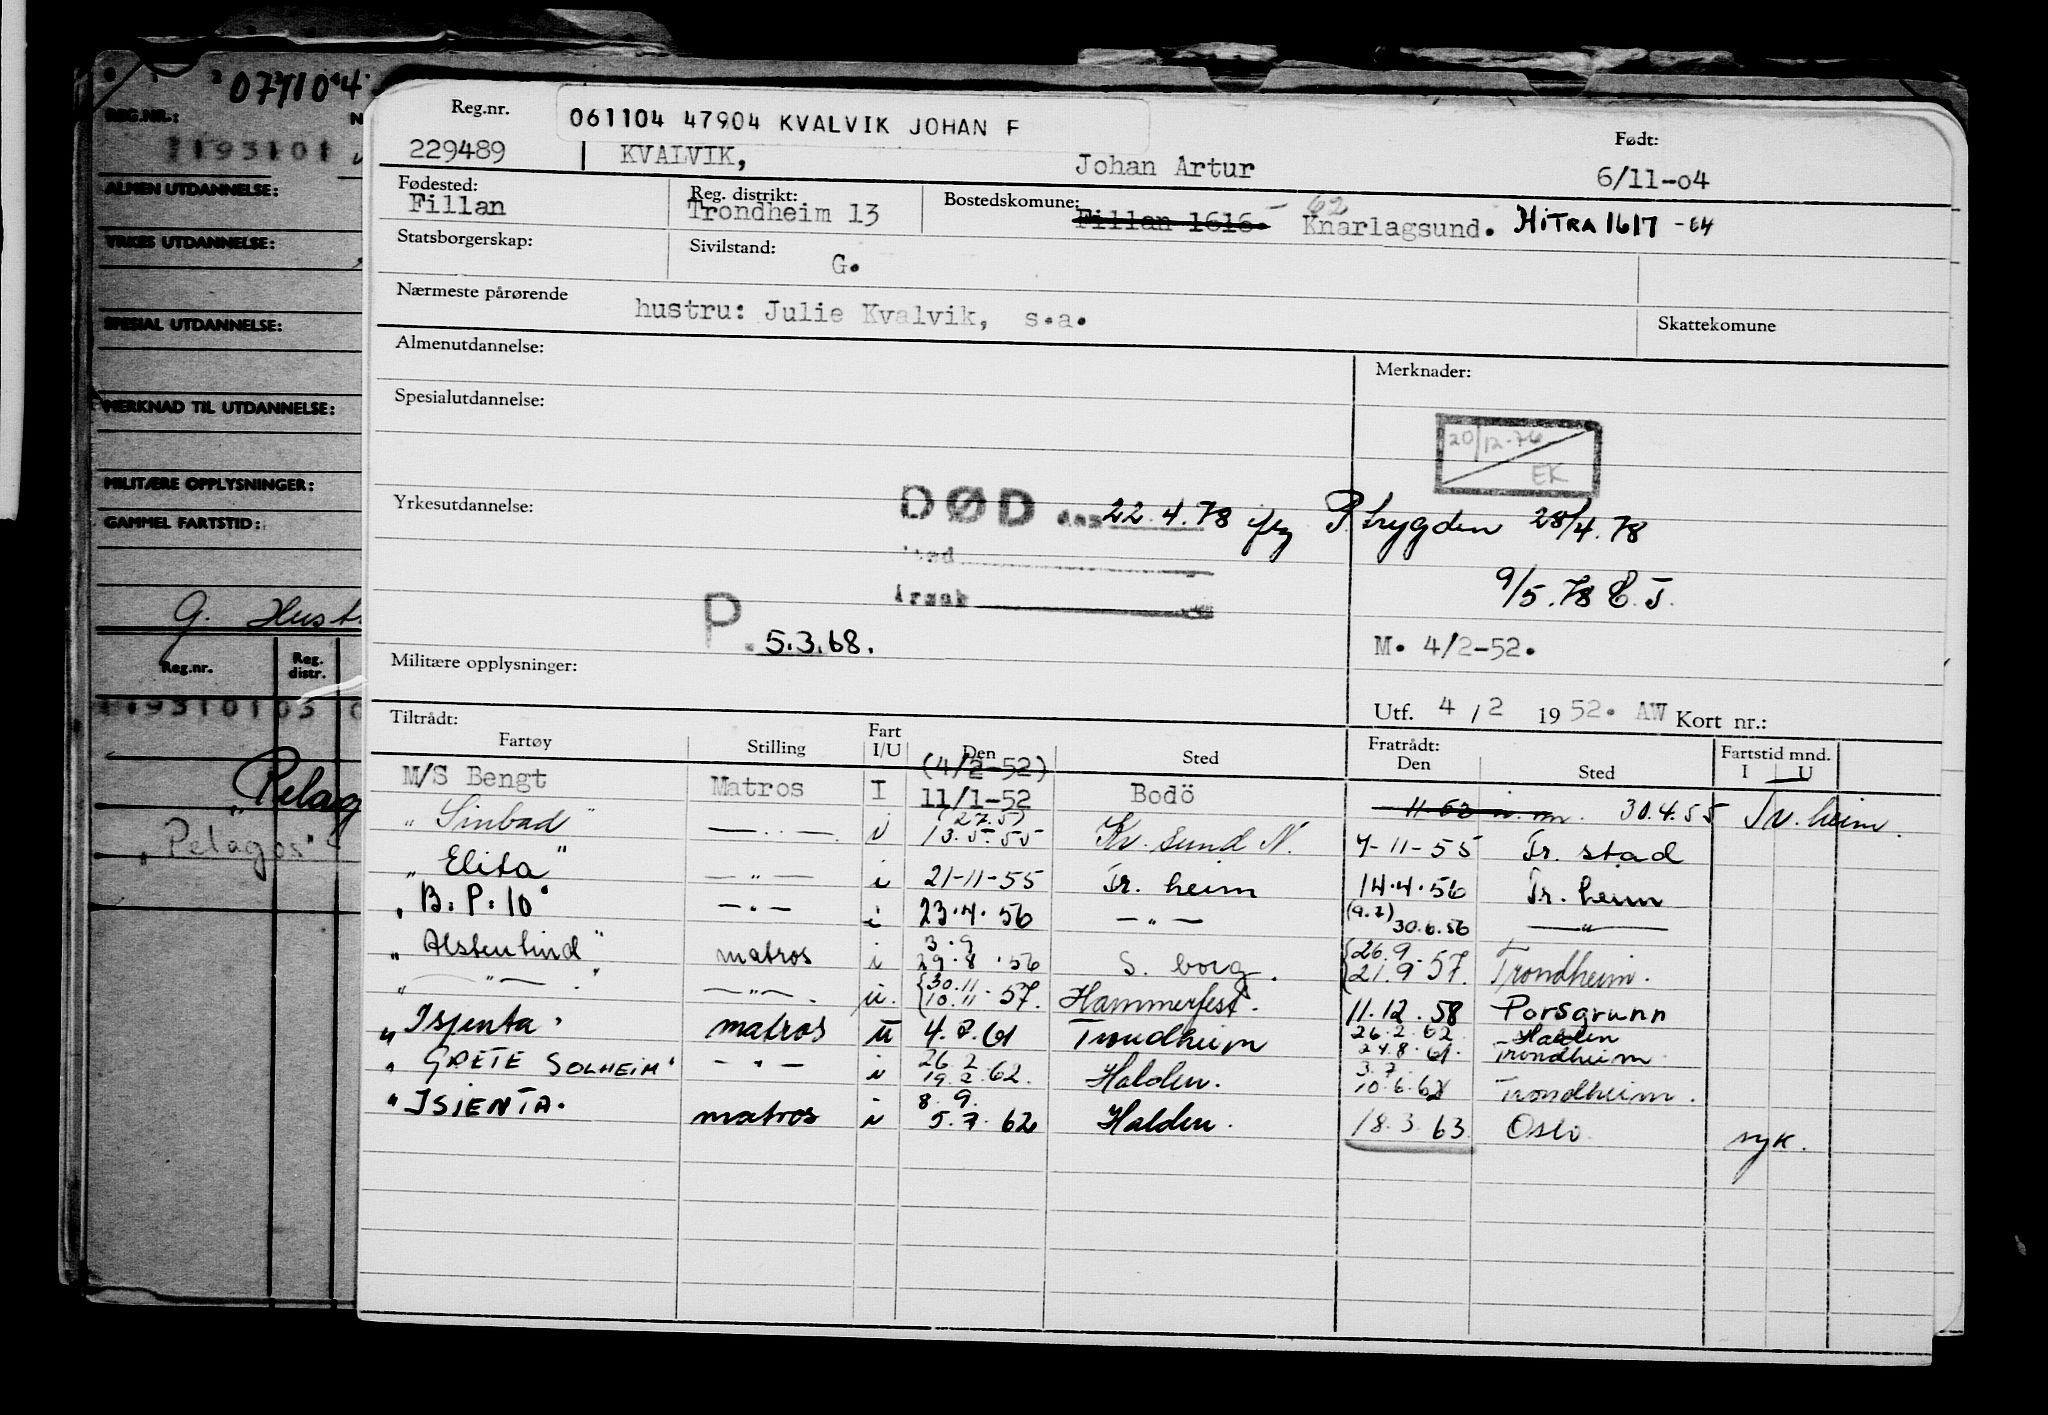 071104
REG.NR.: N
1193101
ALMEN UTDANNELSE:
YRKES UTDANNELSE:
SPESIAL UTDANNELSE:
MERKNAD TIL UTDANNELSE:
MILITÆRE OPPLYSNINGER:
GAMMEL FARTSTID:
G. Hust
Reg.nr. Reg. distr.
1193101 03
"Pelag
"Pelagos"
Reg.nr. 061104 47904 KVALVIK JOHAN F Født:
229489 KVALVIK, Johan Artur 6/11-04
Fødested: Reg. distrikt: Bostedskomune: 62
Fillan Trondheim 13 Fillan 1616. Knarlagsund. HITRA 1617 -64
Statsborgerskap: Sivilstand: G.
Nærmeste pårørende hustru: Julie Kvalvik, s.a. Skattekomune
Almenutdannelse: Merknader:
Spesialutdannelse:
20/12-76
EK
Yrkesutdannelse: DØD den 22.4.78 ifg P.trygden 28/4.78
Sted
Årsak 9/5.78 E.J.
P. 5.3.68. M. 4/2-52.
Militære opplysninger:
Utf. 4/2 1952. AW Kort nr.:
Tiltrådt: Fratrådt:
Fartøy Stilling Fart I/U Den Sted Den Sted Fartstid mnd. I U
(4/2-52)
M/S Bengt Matros I 11/1-52 Bodö 30.4.55 Tr.heim.
" Sinbad " — " — i (27.5) 13.5.55 Kr. sund N. 7-11-55 Fr. stad
" Elita " — " — i 21-11-55 Tr. heim 14.4.56 Tr. heim
" B.P.10 " — " — i 23.4.56 — " — (9.7) 30.6.56 — " —
" Alstentind " matros i 3.9 29.8.56 S. borg. 26.9 21.9.57. Trondheim.
" — " — " — " — . u. 30.11 10.11.57. Hammerfest. 11.12.58 Porsgrunn
26.2.62 Halden
" Isjenta " matros u 4.8.61 Trondheim 24.8.61. Trondheim
" GRETE SOLHEIM " — " — i 26.2 19.2.62. Halden. 3.7 10.6.62 Trondheim.
" ISJENTA " matros i 8.9. 5.7.62 Halden. 18.3.63 Oslo syk.